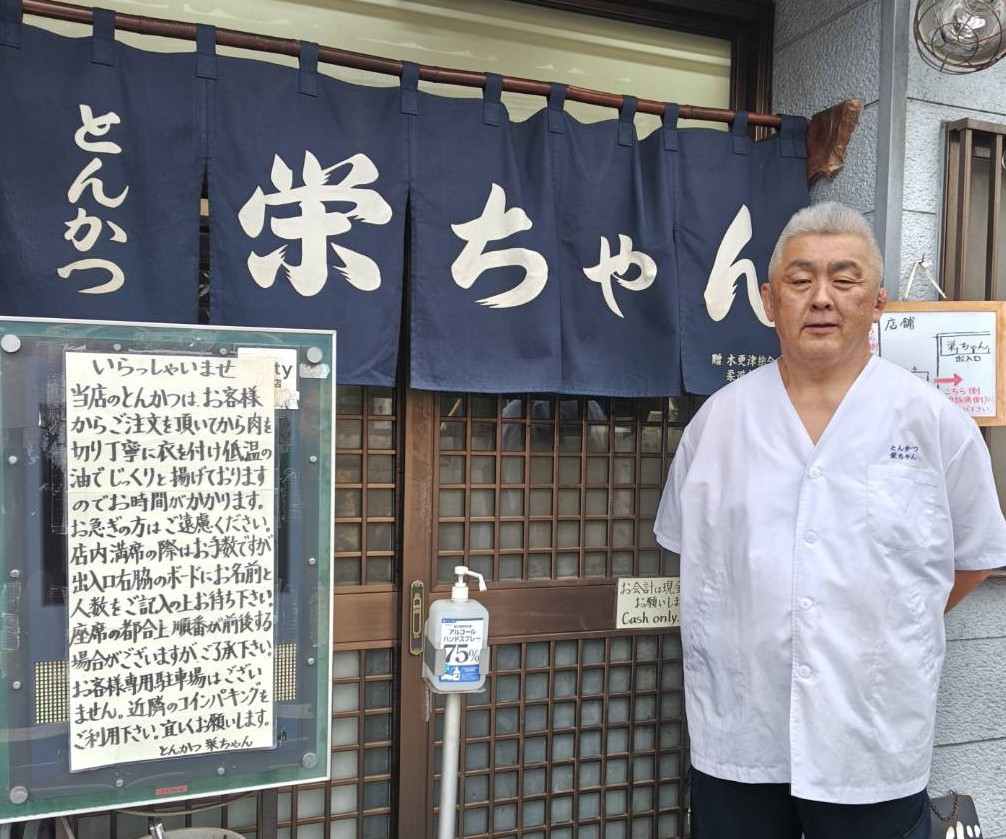 とんかつ
栄ちゃん
贈 木更津総合
いらっしゃいませ
当店のとんかつは、お客様
からご注文を頂いてから肉を
切り丁寧に衣を付け低温の
油でじっくりと揚げております
のでお時間がかかります。
お急ぎの方はご遠慮ください。
店内満席の際はお手数ですが
出入口右脇のボードにお名前と
人数をご記入の上お待ち下さい
座席の都合上順番が前後する
場合がございますがご了承下さい
お客様専用駐車場はござい
ません。近隣のコインパーキングを
ご利用下さい。宜しくお願いします。
とんかつ 栄ちゃん
アルコール
ハンドスプレー
75%
お会計は現金
お願いしま
Cash only.
とんかつ
栄ちゃん
店舗
栄ちゃん
出入口
こちら側